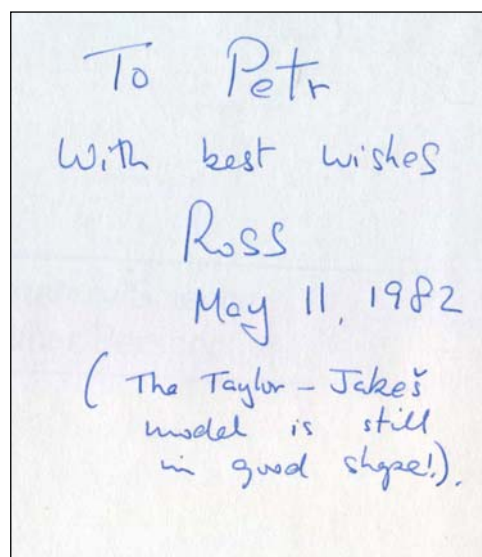 To Petr
With best wishes
Ross
May 11, 1982
( The Taylor - Jakeš
model is still
in good shape!).